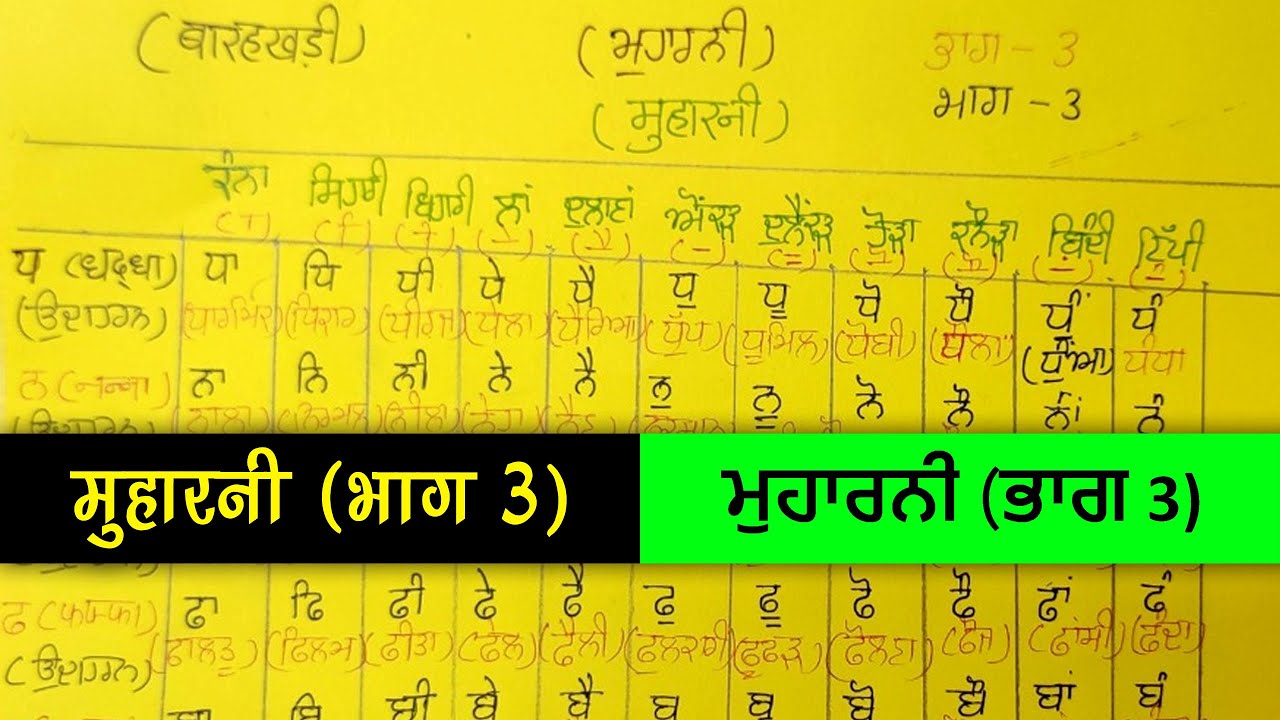 (बारहखड़ी) (ਮੁਹਾਰਨੀ) ਭਾਗ - 3
(मुहारनी) भाग - 3
ਕੰਨਾ ਸਿਹਾਰੀ ਬਿਹਾਰੀ ਲਾਂ ਦੁਲਾਵਾਂ ਔਂਕੜ ਦੁਲੈਂਕੜ ਹੋੜਾ ਕਨੌੜਾ ਬਿੰਦੀ ਟਿੱਪੀ
ਧ (धद्धा) ਧਾ ਧਿ ਧੀ ਧੇ ਧੈ ਧੁ ਧੂ ਧੋ ਧੌ ਧੂੰ ਧੰ
(ਉਦਾਹਰਨ) (ਧਾਰਮਿਕ) (ਧਿਰਾਜ) (ਧੀਰਜ) (ਧੇਲਾ) (ਧੈਗਿਆ) (ਧੁੱਪ) (ਧੂਮਿਲ) (ਧੋਬੀ) (ਧੌਲਾ) (ਧੂੰਆ) ਧੰਧਾ
ਨ (नन्ना) ਨਾ ਨਿ ਨੀ ਨੇ ਨੈ ਨੁ ਨੂ ਨੋ ਨੌ ਨਾਂ ਨੰ
मुहारनी (भाग 3) ਮੁਹਾਰਨੀ (ਭਾਗ 3)
ਫ (फफ्फा) ਫਾ ਫਿ ਫੀ ਫੇ ਫੈ ਫੁ ਫੂ ਫੋ ਫੌ ਫਾਂ ਫੰ
(ਉਦਾਹਰਨ) (ਫਾਲਤੂ) (ਫਿਲਮ) (ਫੀਤਾ) (ਫੇਲ) (ਫੈਲੀ) (ਫੁਲਕਾਰੀ) (ਫੂਫੜ) (ਫੋਲਣਾ) (ਫੌਜ) (ਫਾਂਸੀ) (ਫੰਦਾ)
ਬੀ ਬੇ ਬੈ ਬੁ ਬੂ ਬੋ ਬੌ ਬਾਂ ਬੰ